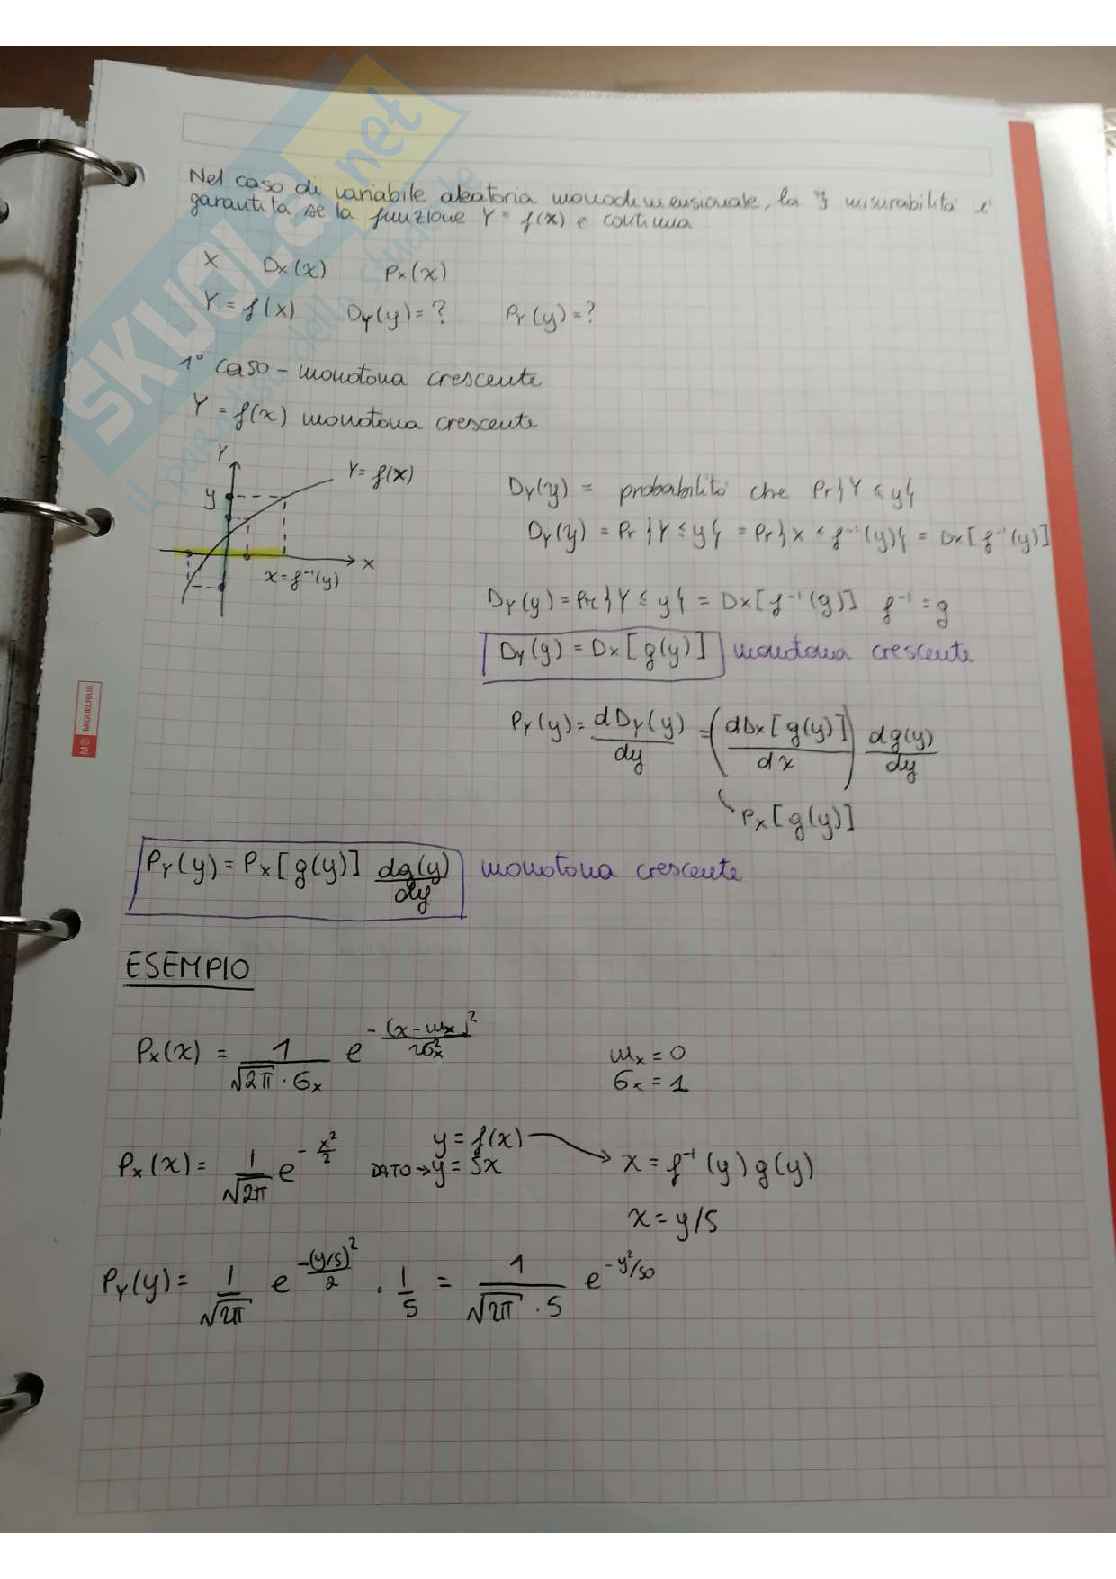 SKUOLA.net
Nel caso di variabile aleatoria monodimensionale, la ℱ misurabilità è
garantita se la funzione Y = f(x) è continua
X Dx(x) Px(x)
Y = f(x) DY(y) = ? PY(y) = ?
1° caso - monotona crescente
Y = f(x) monotona crescente
Y
y
Y = f(x)
X
x = f⁻¹(y)
DY(y) = probabilità che Pr{Y ≤ y}
DY(y) = Pr{Y ≤ y} = Pr{x ≤ f⁻¹(y)} = Dx[f⁻¹(y)]
DY(y) = Pr{Y ≤ y} = Dx[f⁻¹(y)] f⁻¹ = g
DY(y) = Dx[g(y)] monotona crescente
PY(y) = dDY(y)/dy = (dDx[g(y)]/dx) dg(y)/dy
Px[g(y)]
PY(y) = Px[g(y)] dg(y)/dy monotona crescente
MIQUELRIUS
ESEMPIO
Px(x) = 1/(√2π · σx) e^-(x-mx)²/2σx²
mx = 0
σx = 1
Px(x) = 1/√2π e^-x²/2
y = f(x)
DATO → y = 5x
x = f⁻¹(y) g(y)
x = y/5
PY(y) = 1/√2π e^-(y/5)²/2 · 1/5 = 1/(√2π · 5) e^-y²/50